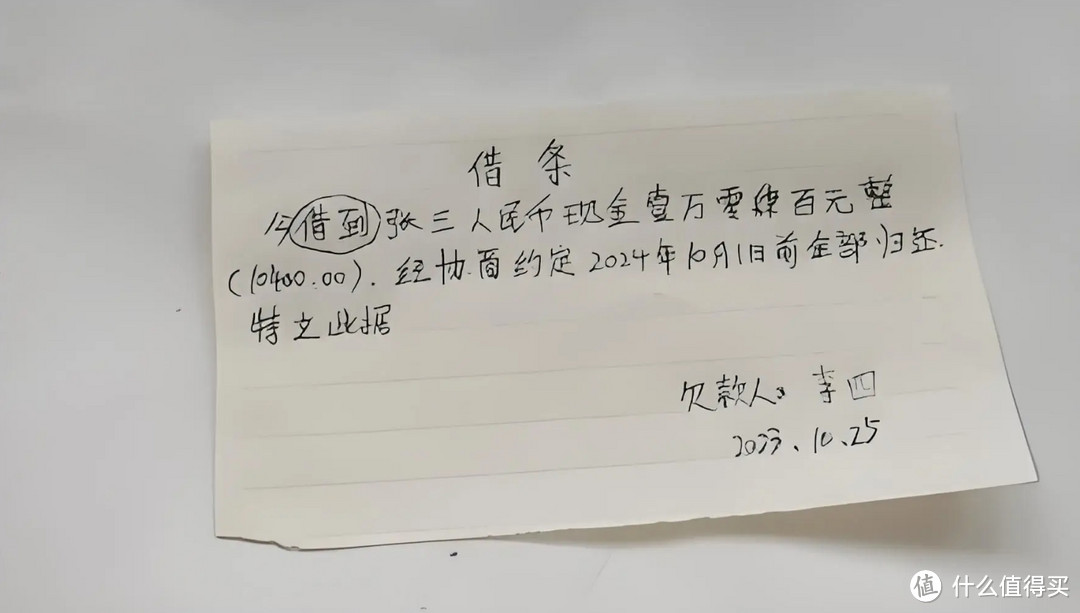 借条
今借到张三人民币现金壹万零肆百元整
(10400.00). 经协商约定2024年10月1日前全部归还.
特立此据
欠款人：李四
2023、10、25
值 什么值得买